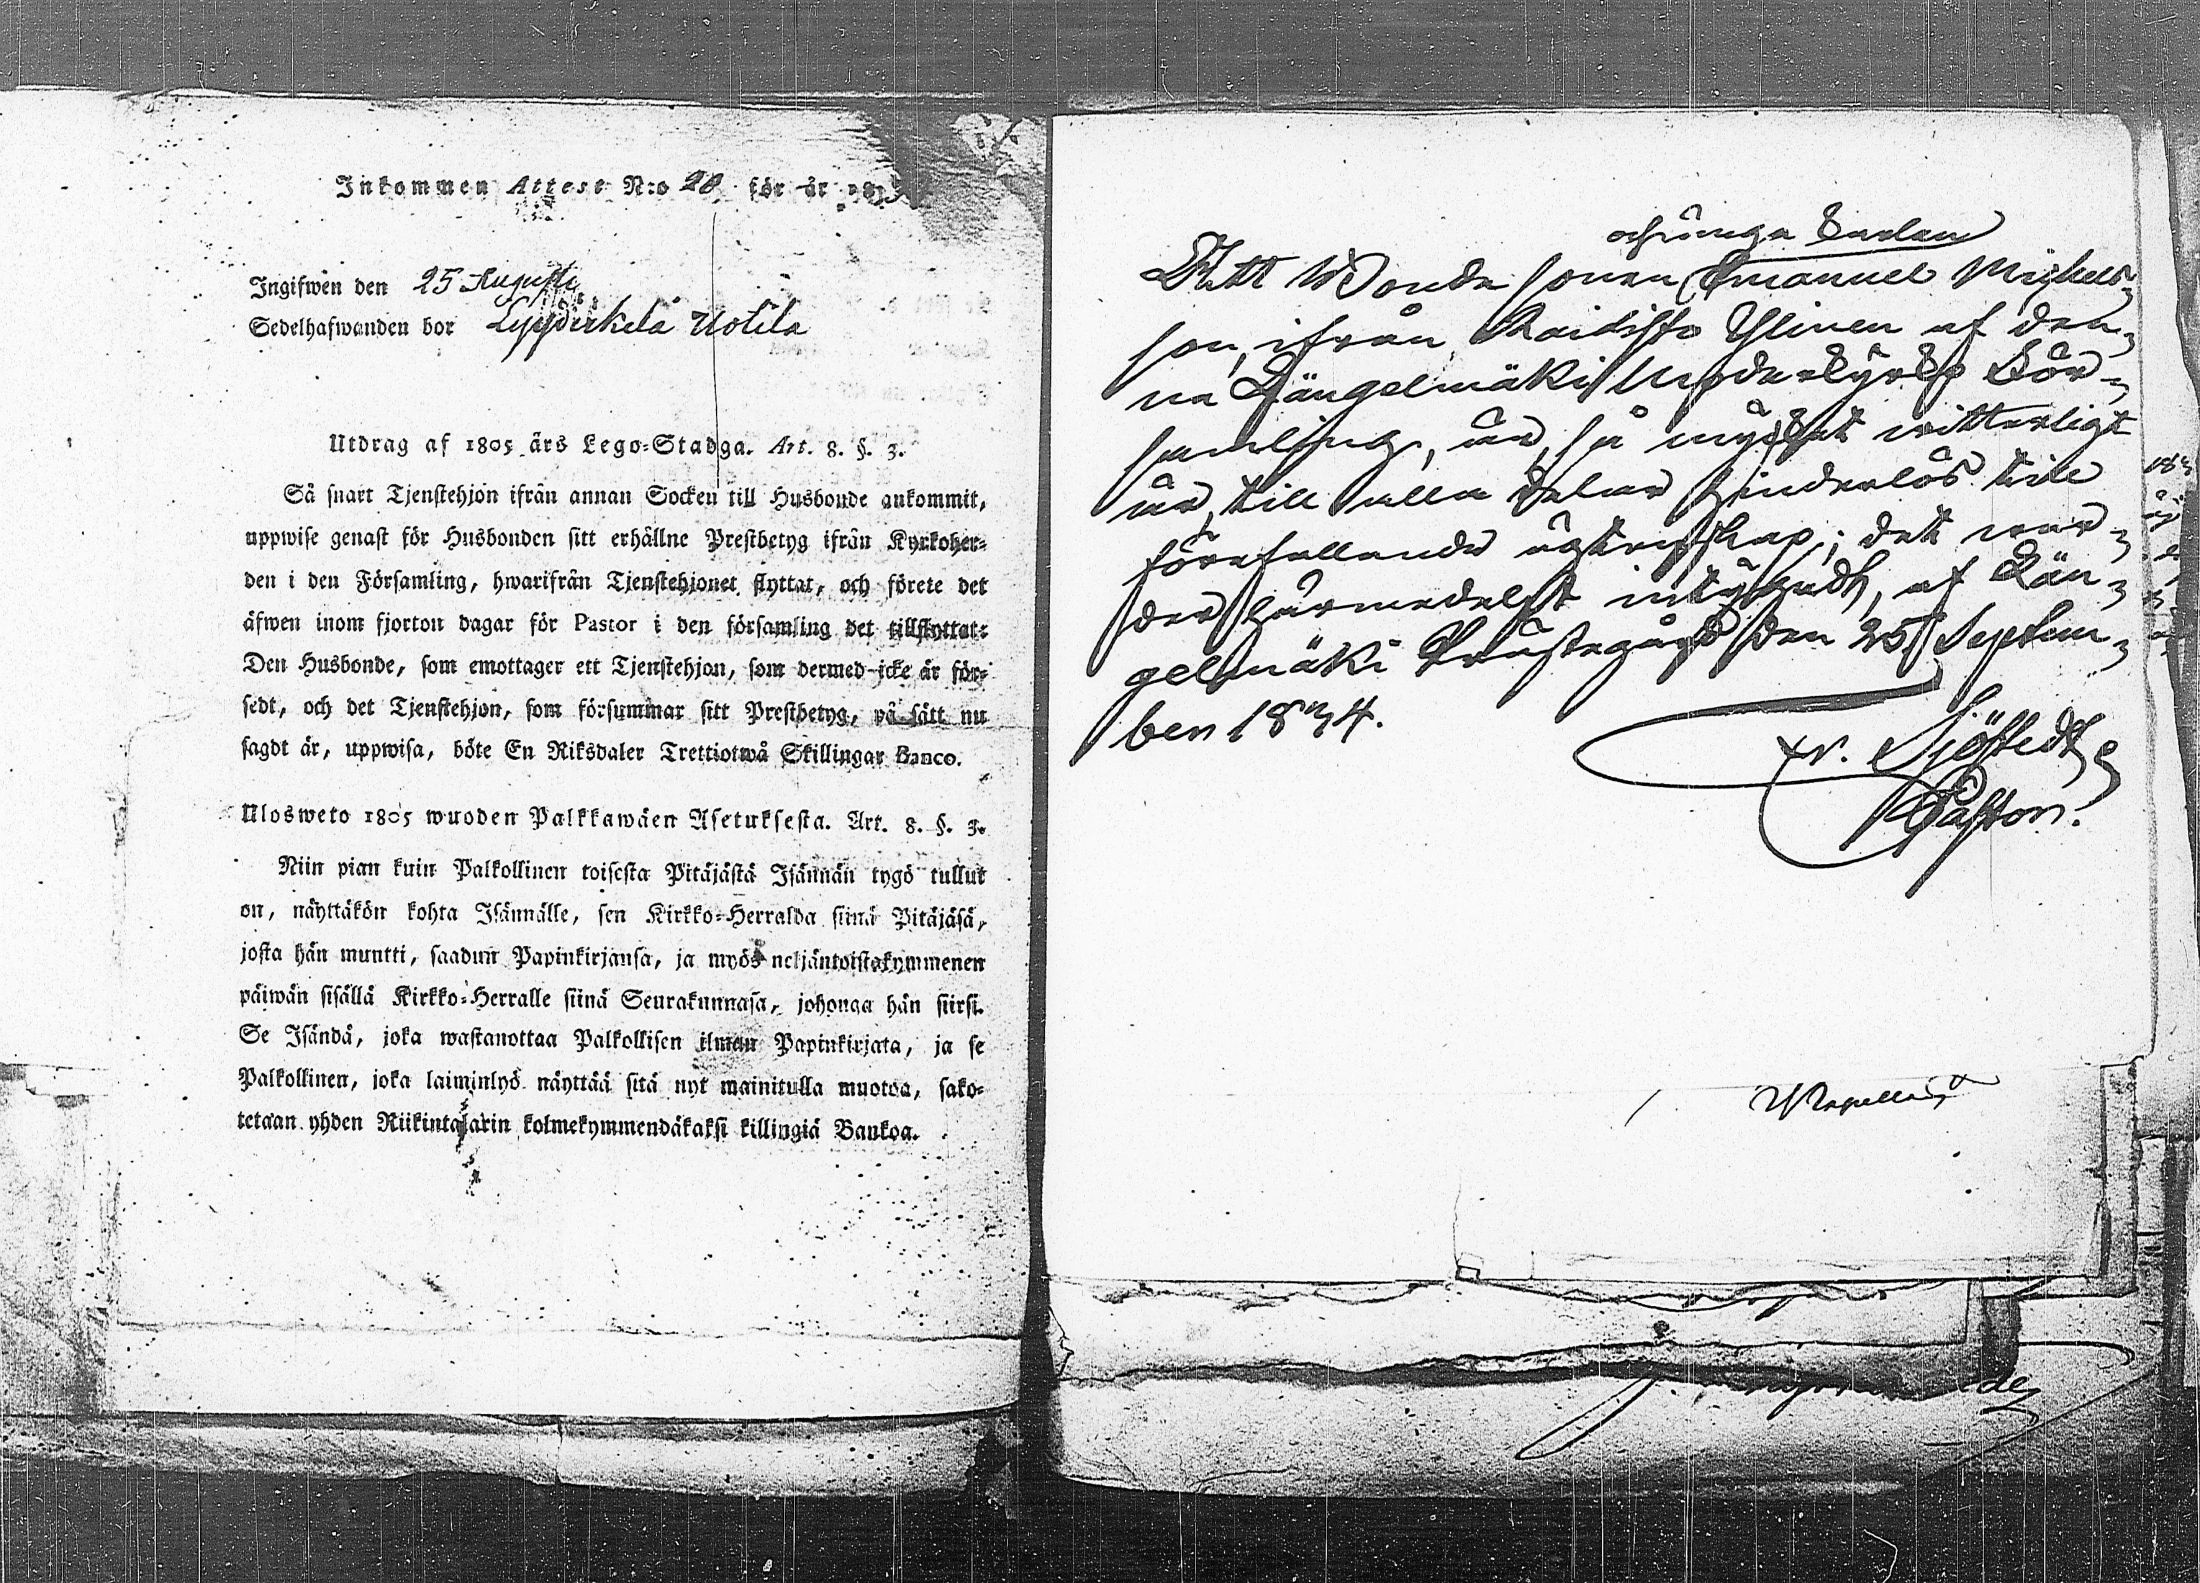 Inkommen Attest N:o 28 för år 183
Ingifwen den 25 Augusti
Sedelhafwanden bor Leppäkelä Uotila
Utdrag af 1805 års Lego-Stadga. Art. 8. §. 3.
Så snart Tjenstehjon ifrån annan Socken till Husbonde ankommit,
uppwise genast för Husbonden sitt erhållne Prestbetyg ifrån Kyrkoher-
den i den Församling, hwarifrån Tjenstehjonet flyttat, och förete det
äfwen inom fjorton dagar för Pastor i den församling det tillflyttat:
Den Husbonde, som emottager ett Tjenstehjon, som dermed icke är för-
sedt, och det Tjenstehjon, som försummar sitt Prestbetyg, på sätt nu
sagdt är, uppwisa, böte En Riksdaler Trettiotwå Skillingar Banco.
Ulosweto 1805 wuoden Palkkawäen Asetuksesta. Art. 8. §. 3.
Niin pian kuin Palkollinen toisesta Pitäjästä Isännän tygö tullut
on, näyttäkön kohta Isännälle, sen Kirkko-Herralda siinä Pitäjäsä,
josta hän muutti, saadun Papinkirjansa, ja myös neljäntoistakymmenen
päiwän sisällä Kirkko-Herralle siinä Seurakunnasa, johonga hän siirsi.
Se Isändä, joka wastanottaa Palkollisen ilman Papinkirjata, ja se
Palkollinen, joka laiminlyö näyttää sitä nyt mainitulla muotoa, sako-
tetaan yhden Riikintalarin kolmekymmendäkaksi killingiä Bankoa.
och unga Enslan
Att Bonde sonen Emanuel Michels-
son, ifrån Raidisto Ylinen af den-
na Längelmäki Moderkyrko För-
samling, är, så mycket witterligt
är, till alla delar hinderlös till
förefallande ägtenskap; det war-
der härmedelst intygadt, af Län-
gelmäki Prästegård den 25 Septem-
ber 1834.
Sjöstedt
Pastor.